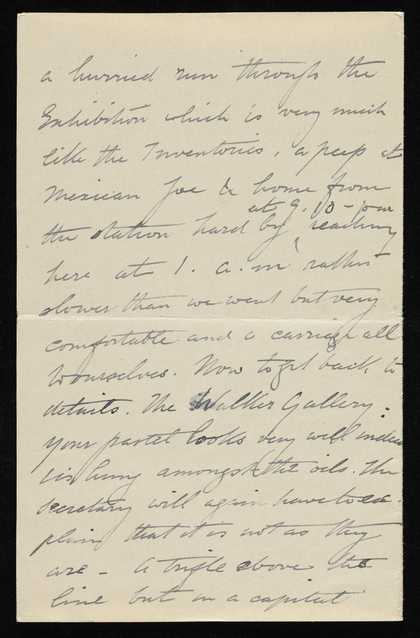 a hurried run through the
Exhibition which is very much
like the Inventories, a peep at
Mexican Joe & home from
at 9.10 - pm
the station hard by, reaching
here at 1. a.m rather
slower than we went but very
comfortable and a carriage all
to ourselves. Now to get back to
details. The Walker Gallery:
your pastel looks very well indeed
is hung amongst the oils. The
secretary will again have to ex-
plain that it is not as they
are - A trifle above the
line but in a capital